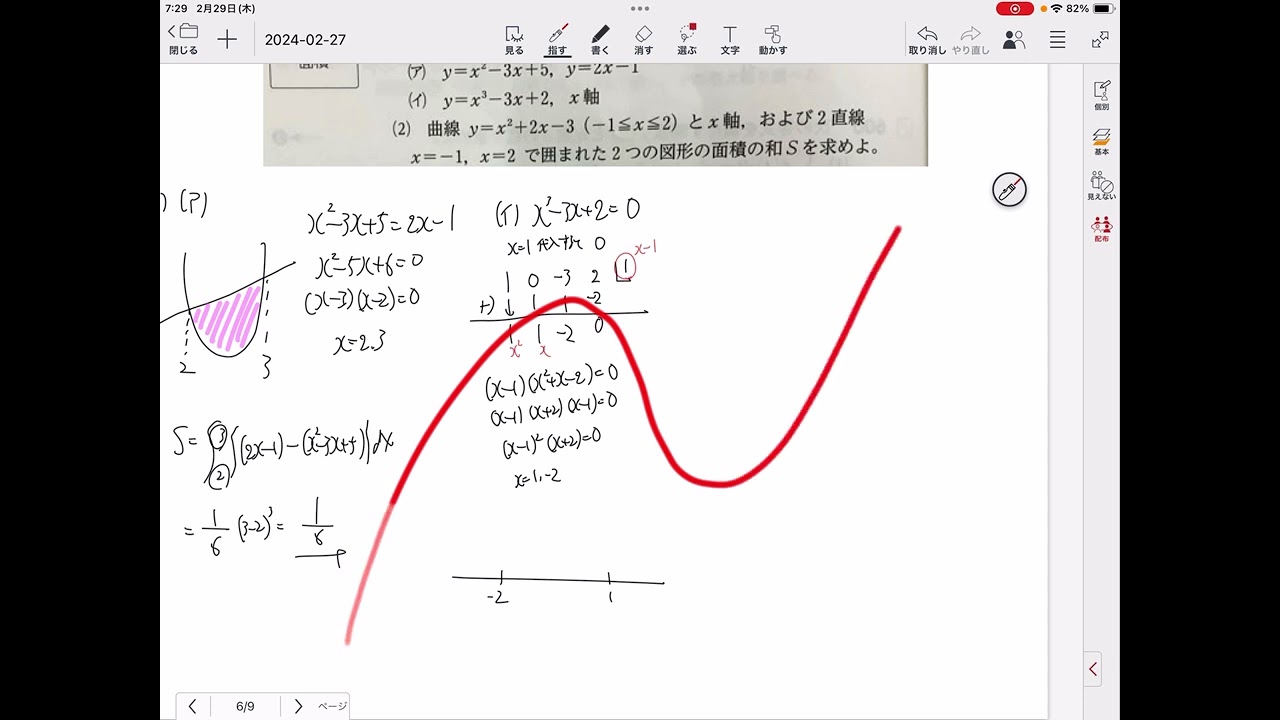 7:29 2月29日(木)
82%
閉じる
2024-02-27
見る
指す
書く
消す
選ぶ
文字
動かす
取り消し
やり直し
(ア) y=x²−3x+5, y=2x−1
(イ) y=x³−3x+2, x軸
(2) 曲線 y=x²+2x−3 (−1≦x≦2) とx軸, および2直線
x=−1, x=2 で囲まれた2つの図形の面積の和Sを求めよ。
個別
基本
見えない
配布
(ア)
x²−3x+5=2x−1
x²−5x+6=0
(x−3)(x−2)=0
x=2.3
2
3
S=∫{(2x−1)−(x²−3x+5)}dx
3
2
= 1/6 (3−2)³ = 1/6
(イ) x³−3x+2=0
x=1 代入すれば 0
x−1
1 0 −3 2 1
+) ↓ 1 1 −2
1 1 −2 0
x² x
(x−1)(x²+x−2)=0
(x−1)(x+2)(x−1)=0
(x−1)²(x+2)=0
x=1,−2
−2
1
6/9
ページ